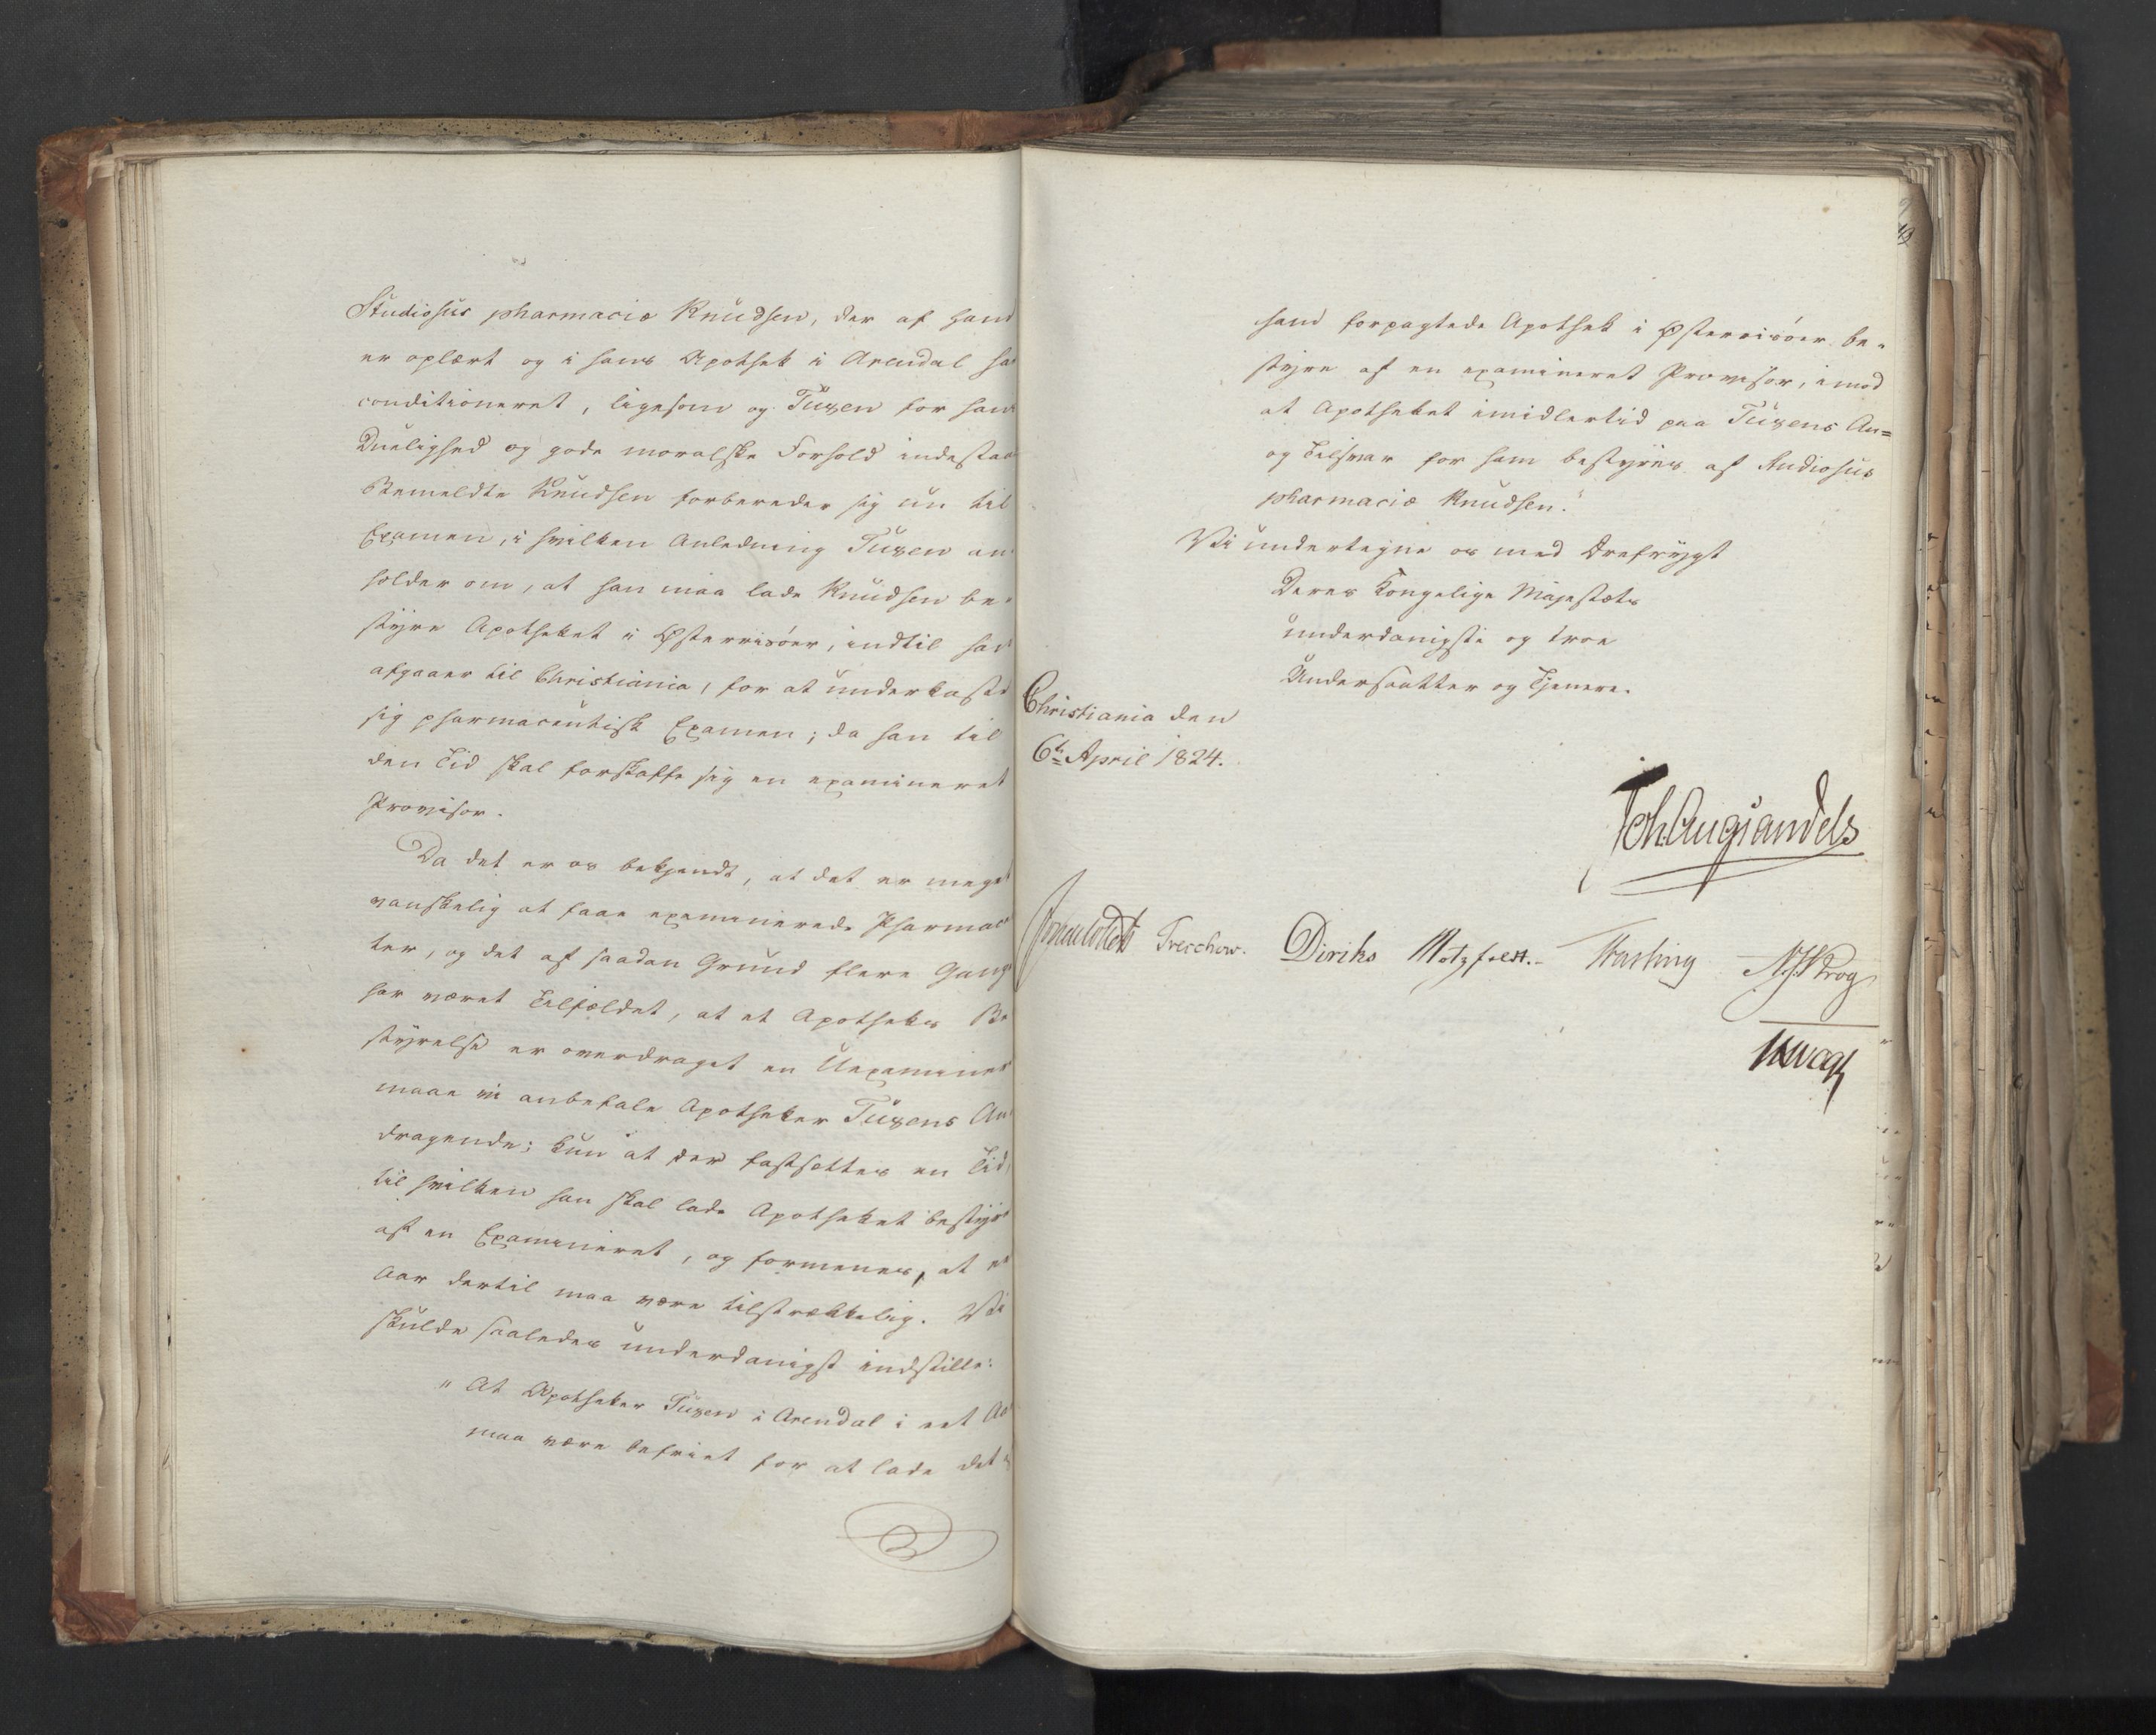 Studiosus pharmaciæ Knudsen, der af ham
er oplært og i hans Apothek i Arendal ha
conditioneret, ligesom og Tuxen for hans
Duelighed og gode moralske Forhold indestaa
Bemeldte Knudsen forbereder sig nu til
Examen, i hvilken Anledning Tuxen an
holder om, at han maa lade Knudsen be-
styre Apotheket i Østerrisöer, indtil han
afgaaer til Christiania, for at underkaste
sig pharmaceutisk Examen; da han til
den Tid skal forskaffe sig en examineret
Provisor.
Da det er os bekjendt, at det er meget
vanskelig at faae examinerede Pharmaceu
ter, og det af saadan Grund flere Gange
har været Tilfældet, at et Apotheks Be
styrelse er overdraget en Uexamineret
maae vi anbefale Apotheker Tuxens An
dragende; kun at der fastsættes en Tid,
til hvilken han skal lade Apotheket bestyre
af en Examineret, og formenes, at et
Aar dertil maa være tilstrækkelig. Vi
skulde saaledes underdanigst indstille:
"At Apotheker Tuxen i Arendal i eet Aar
maa være befriet for at lade det af
ham forpagtede Apothek i Østerrisöer be-
styre af en examineret Provisor, imod
at Apotheket imidlertid paa Tuxens An=
og Tilsvar for ham bestyres af Studiosus
pharmaciæ Knudsen."
Vi undertegne os med Ærefrygt
Deres Kongelige Majestæts
underdanigste og troe
Undersaatter og Tjenere.
Christiania den
6te April 1824.
Joh. Aug. Sandels
Sommerhielm Treschow. Diriks Motzfeldt. Fasting N. J. Krog